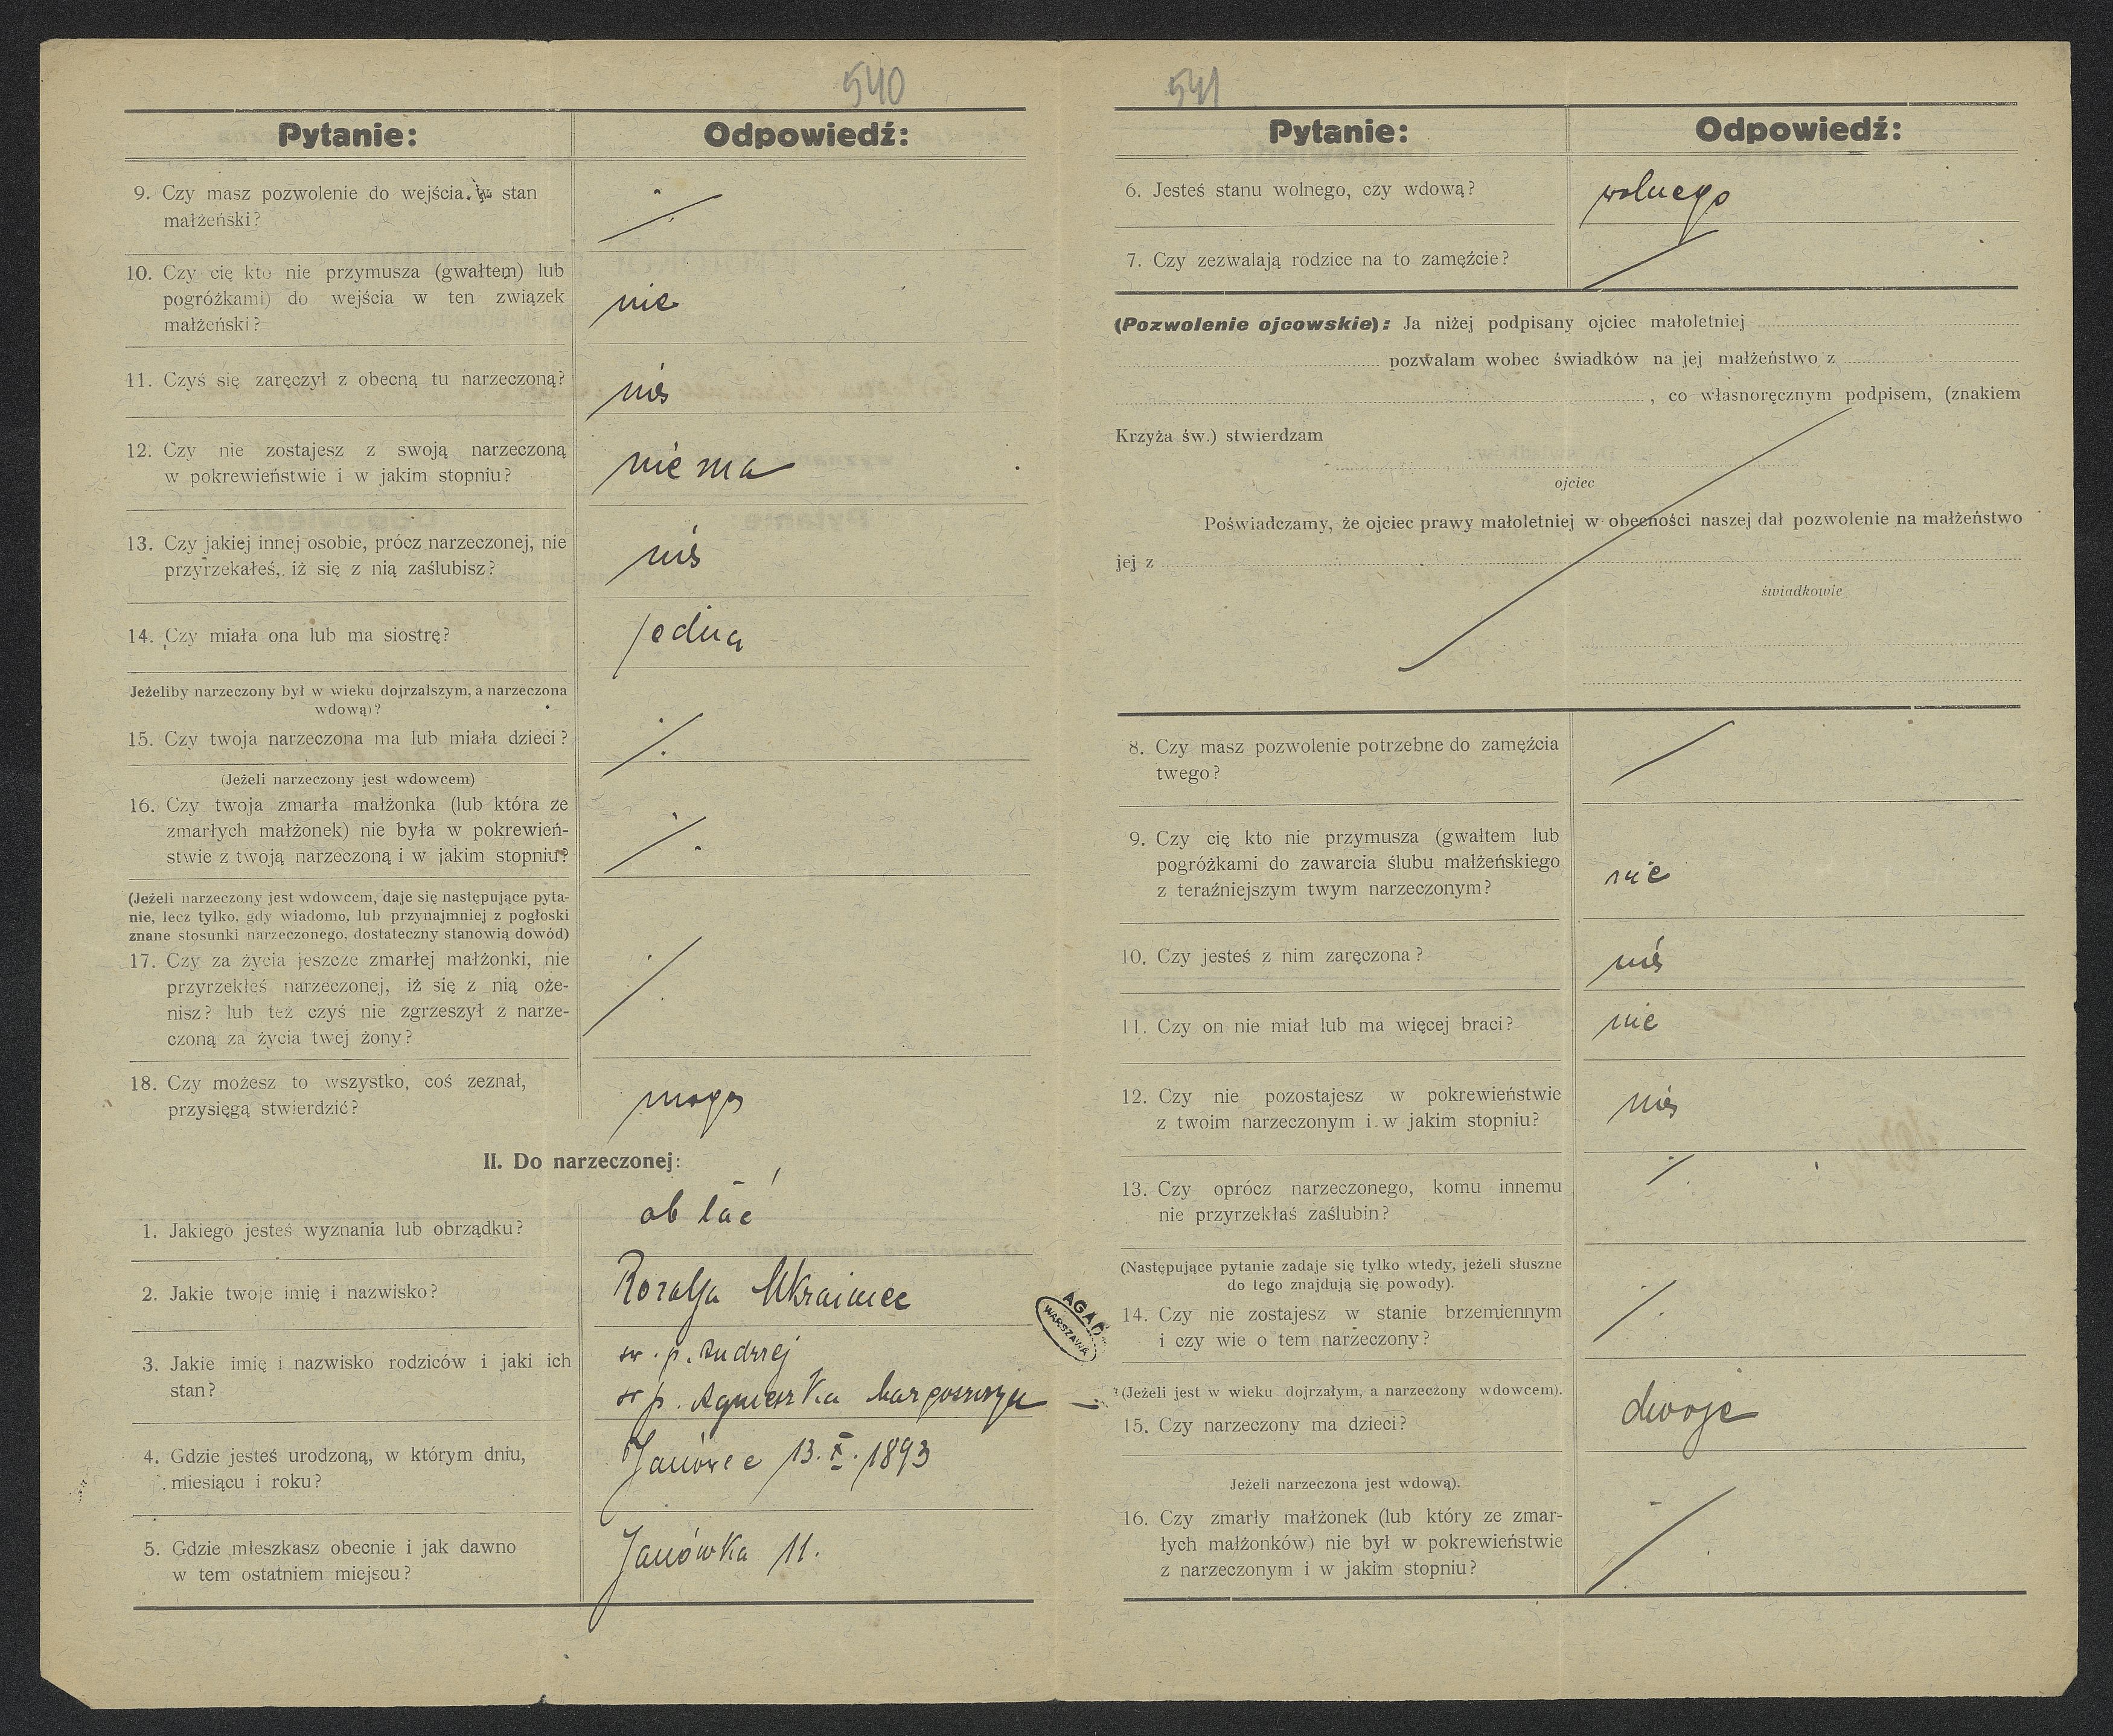 540
Pytanie:
Odpowiedź:
9. Czy masz pozwolenie do wejścia w stan
małżeński?
10. Czy cię kto nie przymusza (gwałtem) lub
pogróżkami) do wejścia w ten związek
małżeński?
nie
11. Czyś się zaręczył z obecną tu narzeczoną?
12. Czy nie zostajesz z swoją narzeczoną
w pokrewieństwie i w jakim stopniu?
nie ma
13. Czy jakiej innej osobie, prócz narzeczonej, nie
przyrzekałeś, iż się z nią zaślubisz?
14. Czy miała ona lub ma siostrę?
jedna
Jeżeliby narzeczony był w wieku dojrzalszym, a narzeczona
wdową)?
15. Czy twoja narzeczona ma lub miała dzieci?
(Jeżeli narzeczony jest wdowcem)
16. Czy twoja zmarła małżonka (lub która ze
zmarłych małżonek) nie była w pokrewień-
stwie z twoją narzeczoną i w jakim stopniu?
(Jeżeli narzeczony jest wdowcem, daje się następujące pyta-
nie, lecz tylko, gdy wiadomo, lub przynajmniej z pogłoski
znane stosunki narzeczonego, dostateczny stanowią dowód)
17. Czy za życia jeszcze zmarłej małżonki, nie
przyrzekłeś narzeczonej, iż się z nią oże-
nisz? lub też czyś nie zgrzeszył z narze-
czoną za życia twej żony?
18. Czy możesz to wszystko, coś zeznał,
przysięgą stwierdzić?
mogę
II. Do narzeczonej:
1. Jakiego jesteś wyznania lub obrządku?
ob łać
2. Jakie twoje imię i nazwisko?
Rozalja Ukrainiec
3. Jakie imię i nazwisko rodziców i jaki ich
stan?
św. p. Andrzej
św p. Agnieszka
4. Gdzie jesteś urodzoną, w którym dniu,
miesiącu i roku?
13. X. 1893
5. Gdzie mieszkasz obecnie i jak dawno
w tem ostatniem miejscu?
Janówka 11.
AGAD
WARSZAWA
541
Pytanie:
Odpowiedź:
6. Jesteś stanu wolnego, czy wdową?
wolnego
7. Czy zezwalają rodzice na to zamęźcie?
(Pozwolenie ojcowskie): Ja niżej podpisany ojciec małoletniej
pozwalam wobec świadków na jej małżeństwo z
, co własnoręcznym podpisem, (znakiem
Krzyża św.) stwierdzam
ojciec
Poświadczamy, że ojciec prawy małoletniej w obecności naszej dał pozwolenie na małżeństwo
jej z
świadkowie
8. Czy masz pozwolenie potrzebne do zamęźcia
twego?
9. Czy cię kto nie przymusza (gwałtem lub
pogróżkami do zawarcia ślubu małżeńskiego
z teraźniejszym twym narzeczonym?
nie
10. Czy jesteś z nim zaręczona?
11. Czy on nie miał lub ma więcej braci?
nie
12. Czy nie pozostajesz w pokrewieństwie
z twoim narzeczonym i w jakim stopniu?
13. Czy oprócz narzeczonego, komu innemu
nie przyrzekłaś zaślubin?
(Następujące pytanie zadaje się tylko wtedy, jeżeli słuszne
do tego znajdują się powody).
14. Czy nie zostajesz w stanie brzemiennym
i czy wie o tem narzeczony?
(Jeżeli jest w wieku dojrzałym, a narzeczony wdowcem).
15. Czy narzeczony ma dzieci?
dwoje
Jeżeli narzeczona jest wdową).
16. Czy zmarły małżonek (lub który ze zmar-
łych małżonków) nie był w pokrewieństwie
z narzeczonym i w jakim stopniu?